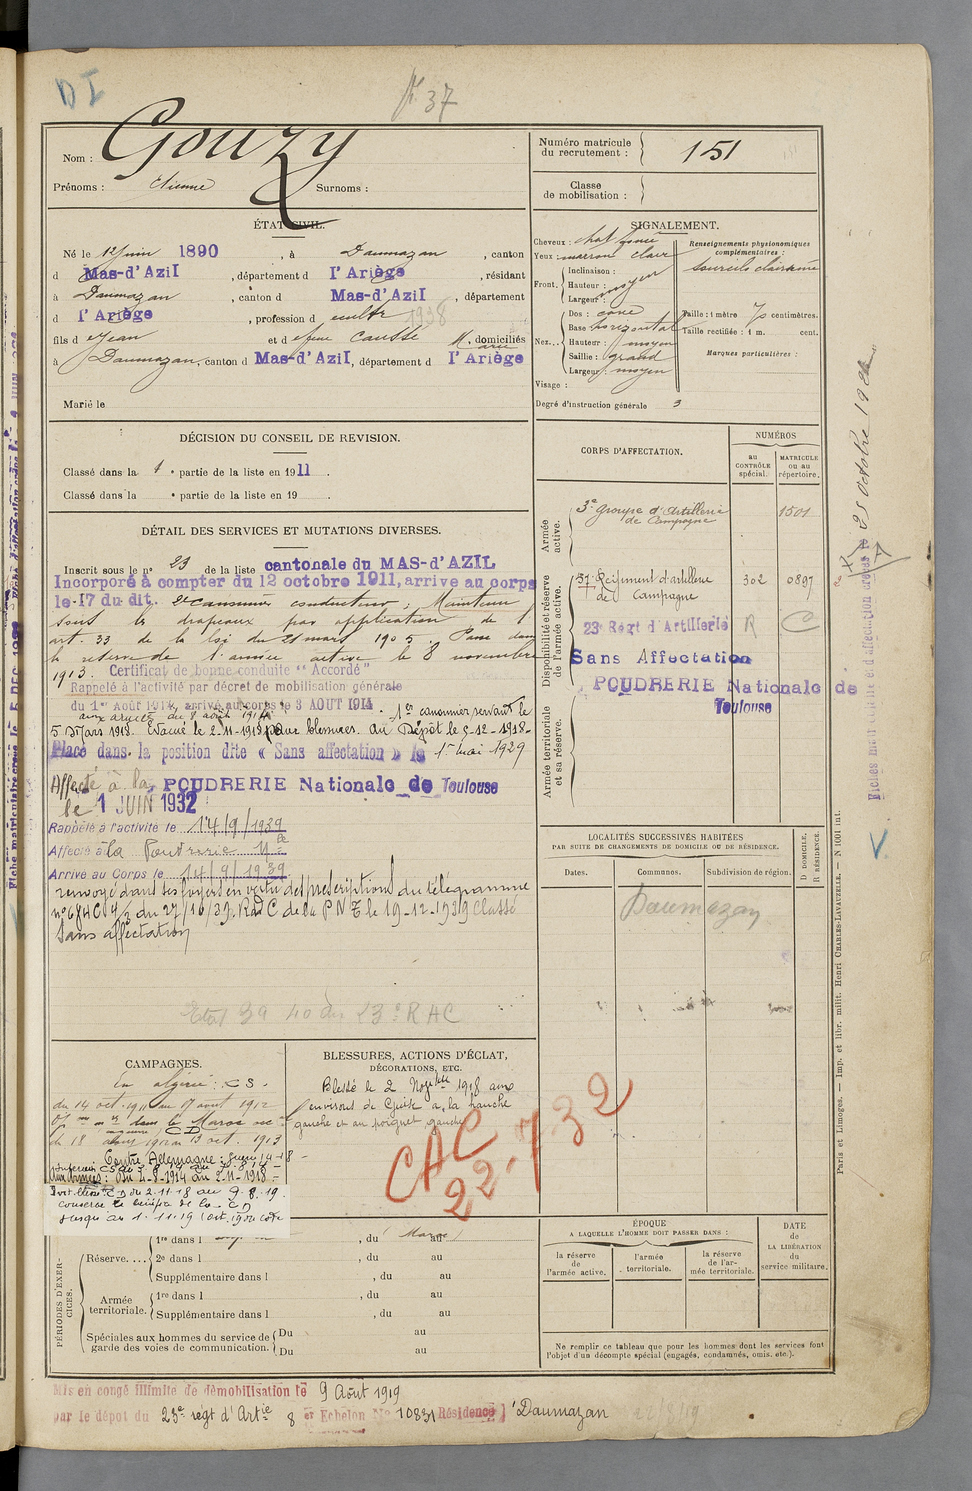 D I
N° 37
Nom : Gouzy
Prénoms : Etienne Surnoms :
Numéro matricule du recrutement : 151
Classe de mobilisation :
ÉTAT CIVIL.
Né le 12 Juin 1890, à Daumazan, canton
d Mas-d'Azil, département d l'Ariège, résidant
à Daumazan, canton d Mas-d'Azil, département
d l'Ariège, profession d cultr 1938
fils d Jean et d Caussé Marie, domiciliés
à Daumazan, canton d Mas-d'Azil, département d l'Ariège
Marié le
SIGNALEMENT.
Cheveux : chat foncé
Yeux : marron clair
Front. Inclinaison :
Hauteur : moyen
Largeur :
Nez... Dos : cave
Base horizontal
Hauteur : moyen
Saillie : grand
Largeur : moyen
Visage :
Renseignements physionomiques complémentaires :
sourcils
Taille : 1 mètre 70 centimètres.
Taille rectifiée : 1 m. cent.
Marques particulières :
Degré d'instruction générale 3
DÉCISION DU CONSEIL DE REVISION.
Classé dans la 1e partie de la liste en 1911.
Classé dans la e partie de la liste en 19 .
DÉTAIL DES SERVICES ET MUTATIONS DIVERSES.
Inscrit sous le n° 23 de la liste cantonale du MAS-d'AZIL
Incorporé à compter du 12 octobre 1911, arrive au corps
le 17 du dit. 2e canonnier conducteur ; Maintenu
sous les drapeaux par application de l'
art. 33 de la loi du 21 mars 1905. Passé dans
la réserve de l'armée active le 8 novembre
1913. Certificat de bonne conduite "Accordé"
Rappelé à l'activité par décret de mobilisation générale
du 1er Août 1914, arrivé au corps le 3 AOUT 1914
aux armées du 8 août 1914. 1er canonnier servant le
5 Mars 1918. Evacué le 2-11-1918 pour blessures. Au Dépôt le 5-12-1918-
Placé dans la position dite « Sans affectation » le 1er mai 1929
Affecté à la POUDRERIE Nationale de Toulouse
le 1 JUIN 1932
Rappelé à l'activité le 14/9/1939
Affecté à la Poudrerie Nle
Arrivé au Corps le 14/9/1939
renvoyé dans ses foyers en vertu des prescriptions du télégramme
R du C de la P N T le 19-12-1939 Classé
Sans affectation
Etat 39 40 du 23e RAC
CORPS D'AFFECTATION.
NUMÉROS
au CONTRÔLE spécial.
MATRICULE ou au répertoire.
Armée active.
3e groupe d'Artillerie de Campagne 1501
Disponibilité et réserve de l'armée active.
57e Régiment d'artillerie de Campagne 302 0897
23e Régt d'Artillerie R C
Sans Affectation
POUDRERIE Nationale de Toulouse
Armée territoriale et sa réserve.
LOCALITÉS SUCCESSIVES HABITÉES
PAR SUITE DE CHANGEMENTS DE DOMICILE OU DE RÉSIDENCE.
Dates. Communes. Subdivision de région. D DOMICILE. R RÉSIDENCE.
Daumazan
CAMPAGNES.
En Algérie : CS.
du 14 oct. 1911 au 17 août 1912
dans le Maroc
du 18 août 1912 au 13 oct. 1913
Contre Allemagne :
Intérieur CS du 3-8-1914 au 7-8-14
aux armées : du 8-8-1914 au 2-11-1918-
CD du 2.11.18 au 9.8.19.
conserve le bénéfice de la CD
jusqu'au 1.11.19
BLESSURES, ACTIONS D'ÉCLAT, DÉCORATIONS, ETC.
Blessé le 2 Novembre 1918 aux
environs de Guise à la hanche
gauche et au poignet gauche
CAC
22.732
PÉRIODES D'EXERCICES.
Réserve.... 1re dans l , du (Maroc) au
2e dans l , du au
Supplémentaire dans l , du au
Armée territoriale. 1re dans l , du au
Supplémentaire dans l , du au
Spéciales aux hommes du service de garde des voies de communication. Du au
Du au
ÉPOQUE
A LAQUELLE L'HOMME DOIT PASSER DANS :
la réserve de l'armée active. l'armée territoriale. la réserve de l'armée territoriale.
DATE DE LA LIBÉRATION du service militaire.
Ne remplir ce tableau que pour les hommes dont les services font l'objet d'un décompte spécial (engagés, condamnés, omis, etc.).
Mis en congé illimité de démobilisation le 9 Août 1919
par le dépôt du 23e régt d'Artie 8 e Echelon N° 10831 Résidence Daumazan
Paris et Limoges. — Imp. et libr. milit. Henri CHARLES-LAVAUZELLE. — N 1001 int.